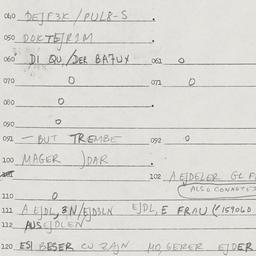 040 DEJF3K/PULS-S .
050 DOKTEJRIM
060 DI QU,/DER BAFUX 061 0
070 0 071 0
080 0 .
090 0
091 — BUT TREMBE 092 0
100 MAGER JDAR .
102 A EJDELER
(ALSO CONNOTES
110 0
111 A EJDL,3N/EJD3LN EJDL,E FRAU (159060
112 AUSEJDLEN
120 ESI BESER CU ZAJN MO,GERER EJDER